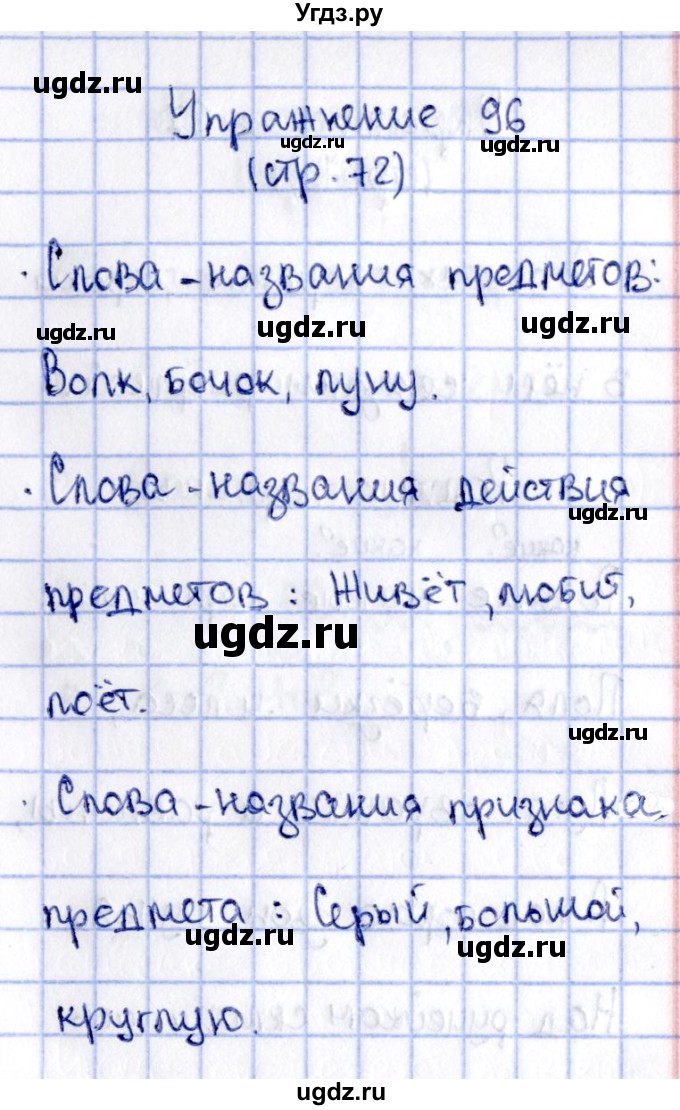 Угдз.ру
ugdz.ru
Упражнение 96
ugdz.ru ugdz.ru
(стр. 72)
· Слова - названия предметов:
ugdz.ru ugdz.ru ugdz.ru
Волк, бочок, луну.
· Слова - названия действия
ugdz.ru
предметов : Живёт, любит,
ugdz.ru
поёт.
ugdz.ru
· Слова - названия признака
предмета : Серый, большой,
ugdz.ru ugdz.ru
круглую.
ugdz.ru